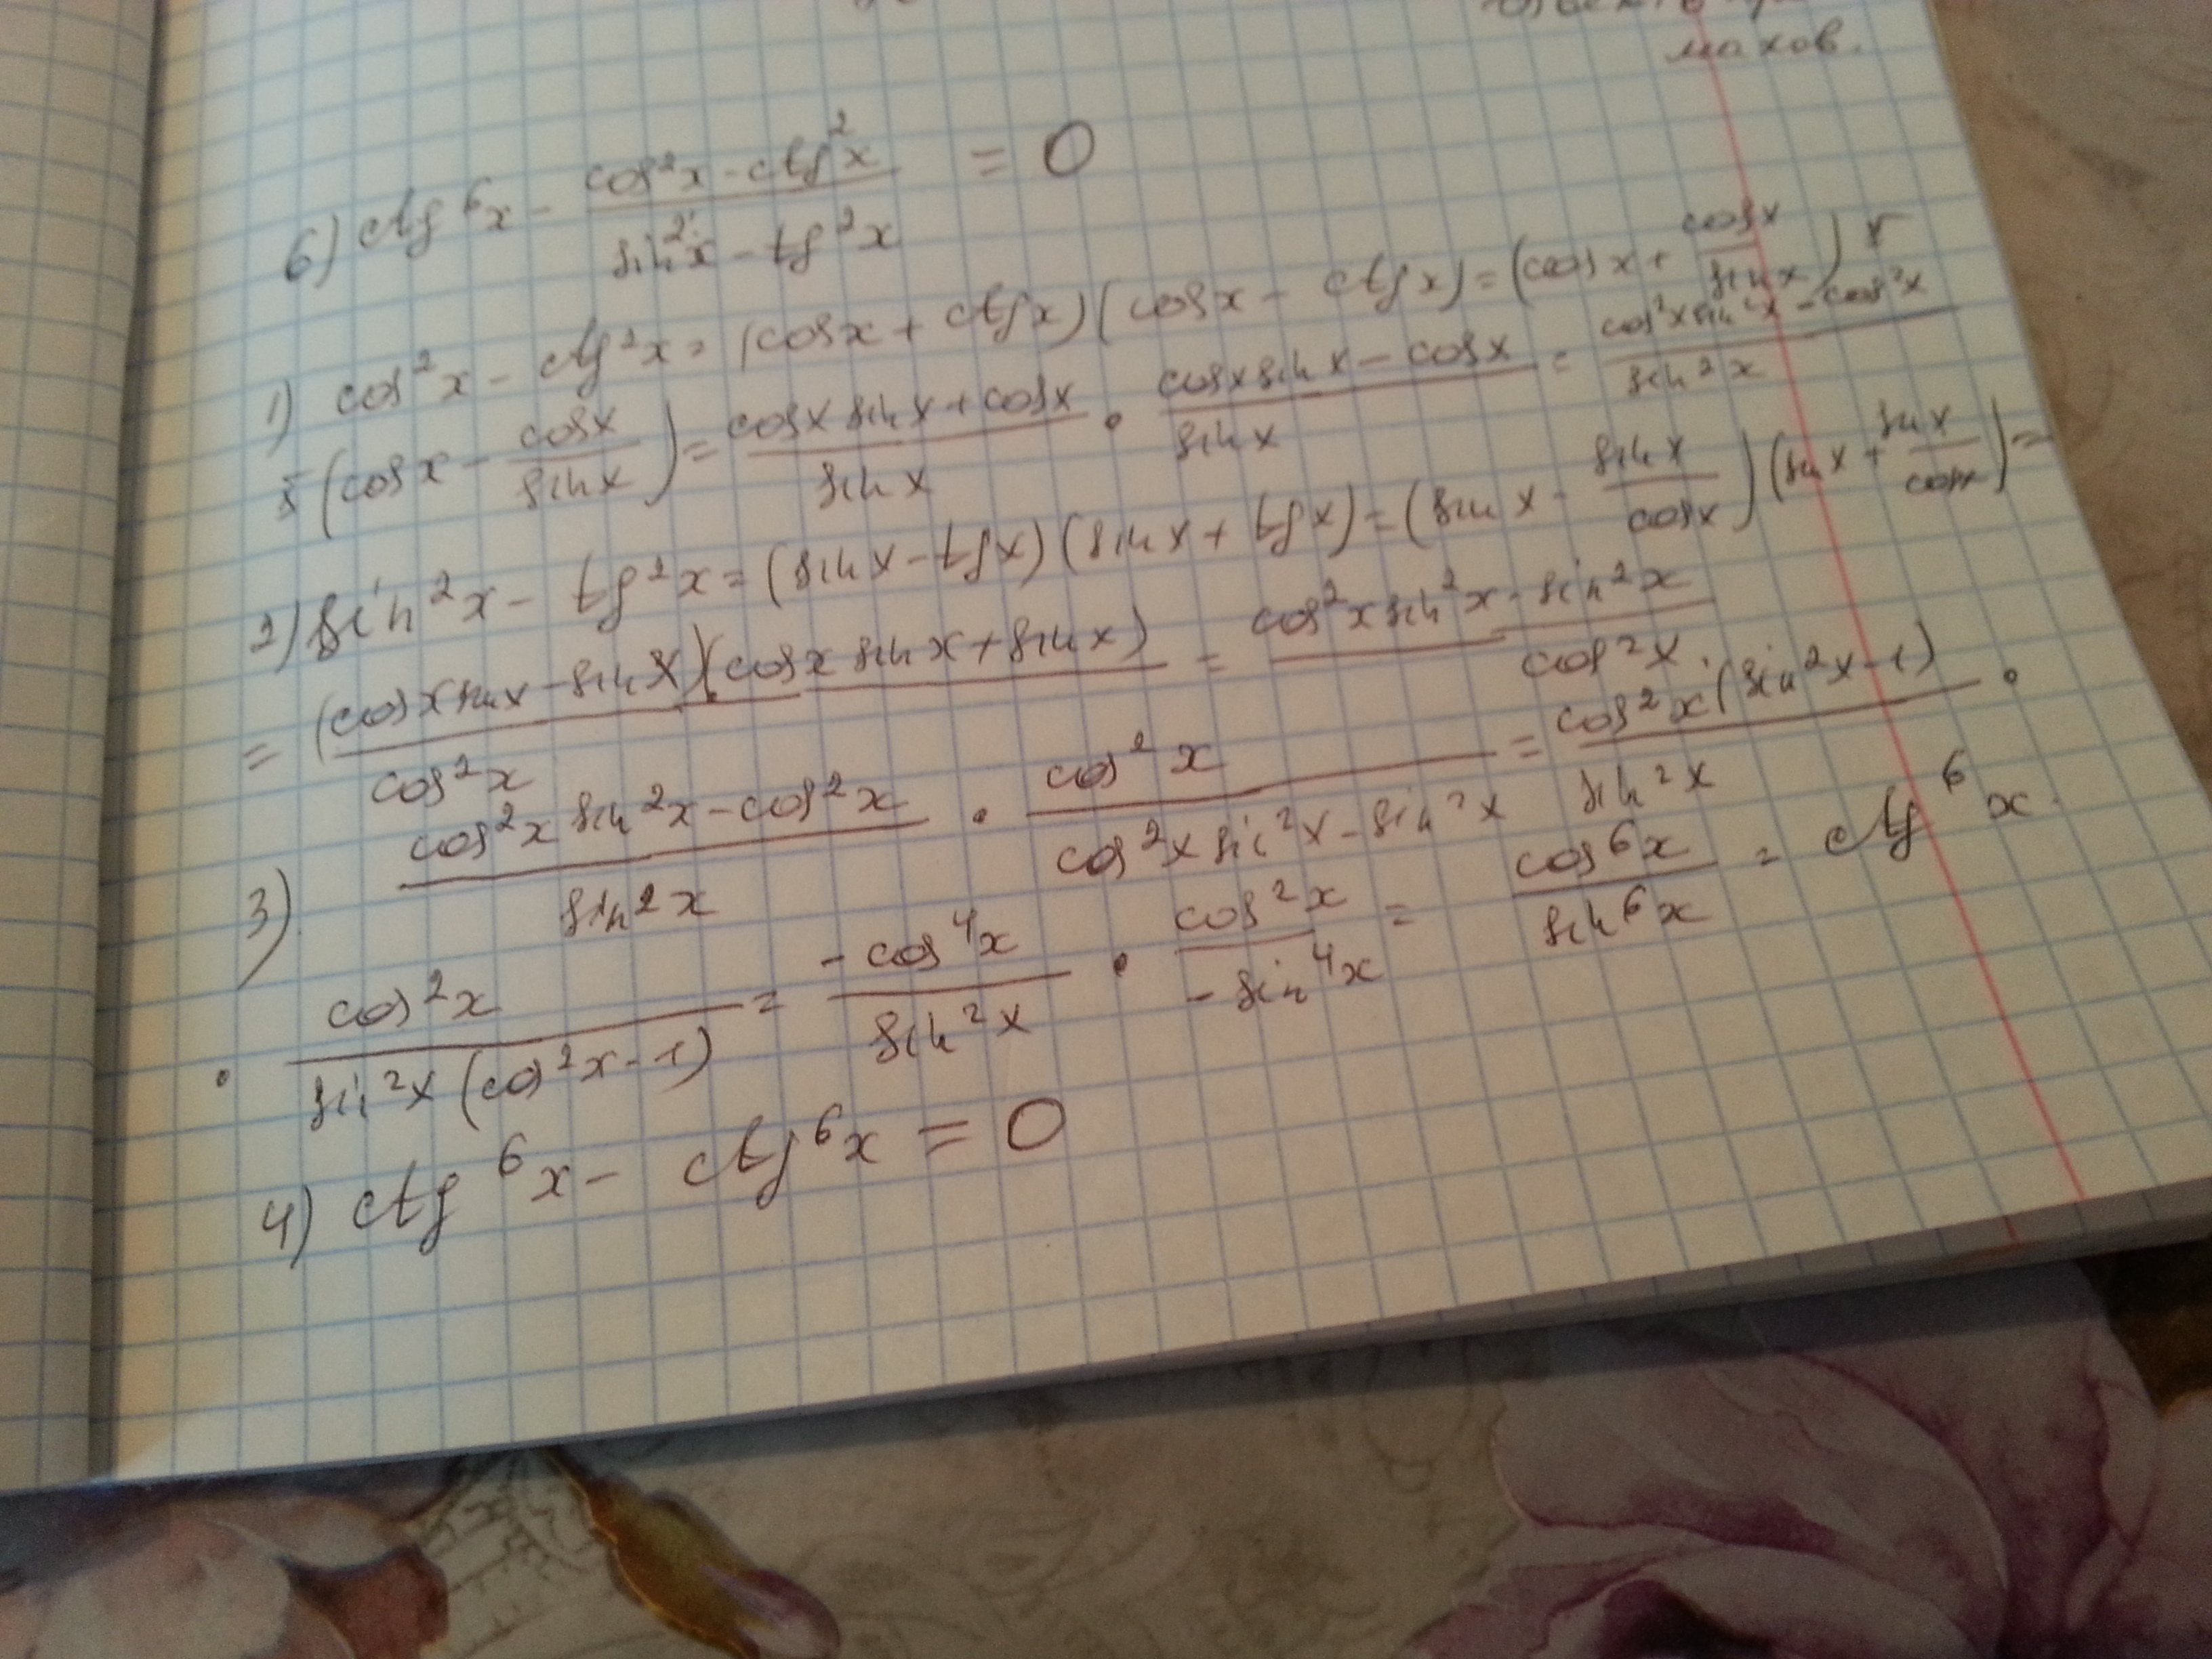 махов.
6) ctg⁶x - (cos²x - ctg²x)/(sin²x - tg²x) = 0
1) cos²x - ctg²x = (cosx + ctgx)(cosx - ctgx) = (cosx + cosx/sinx) x
x (cosx - cosx/sinx) = (cosx sinx + cosx)/sinx · (cosx sinx - cosx)/sinx = (cos²x sin²x - cos²x)/sin²x
2) sin²x - tg²x = (sinx - tgx)(sinx + tgx) = (sinx - sinx/cosx)(sinx + sinx/cosx) =
= (cosx sinx - sinx)(cosx sinx + sinx)/cos²x = (cos²x sin²x - sin²x)/cos²x.
3) (cos²x sin²x - cos²x)/sin²x · cos²x/(cos²x sin²x - sin²x) = cos²x(sin²x - 1)/sin²x ·
· cos²x/(sin²x (cos²x - 1)) = -cos⁴x/sin²x · cos²x/-sin⁴x = cos⁶x/sin⁶x = ctg⁶x.
4) ctg⁶x - ctg⁶x = 0